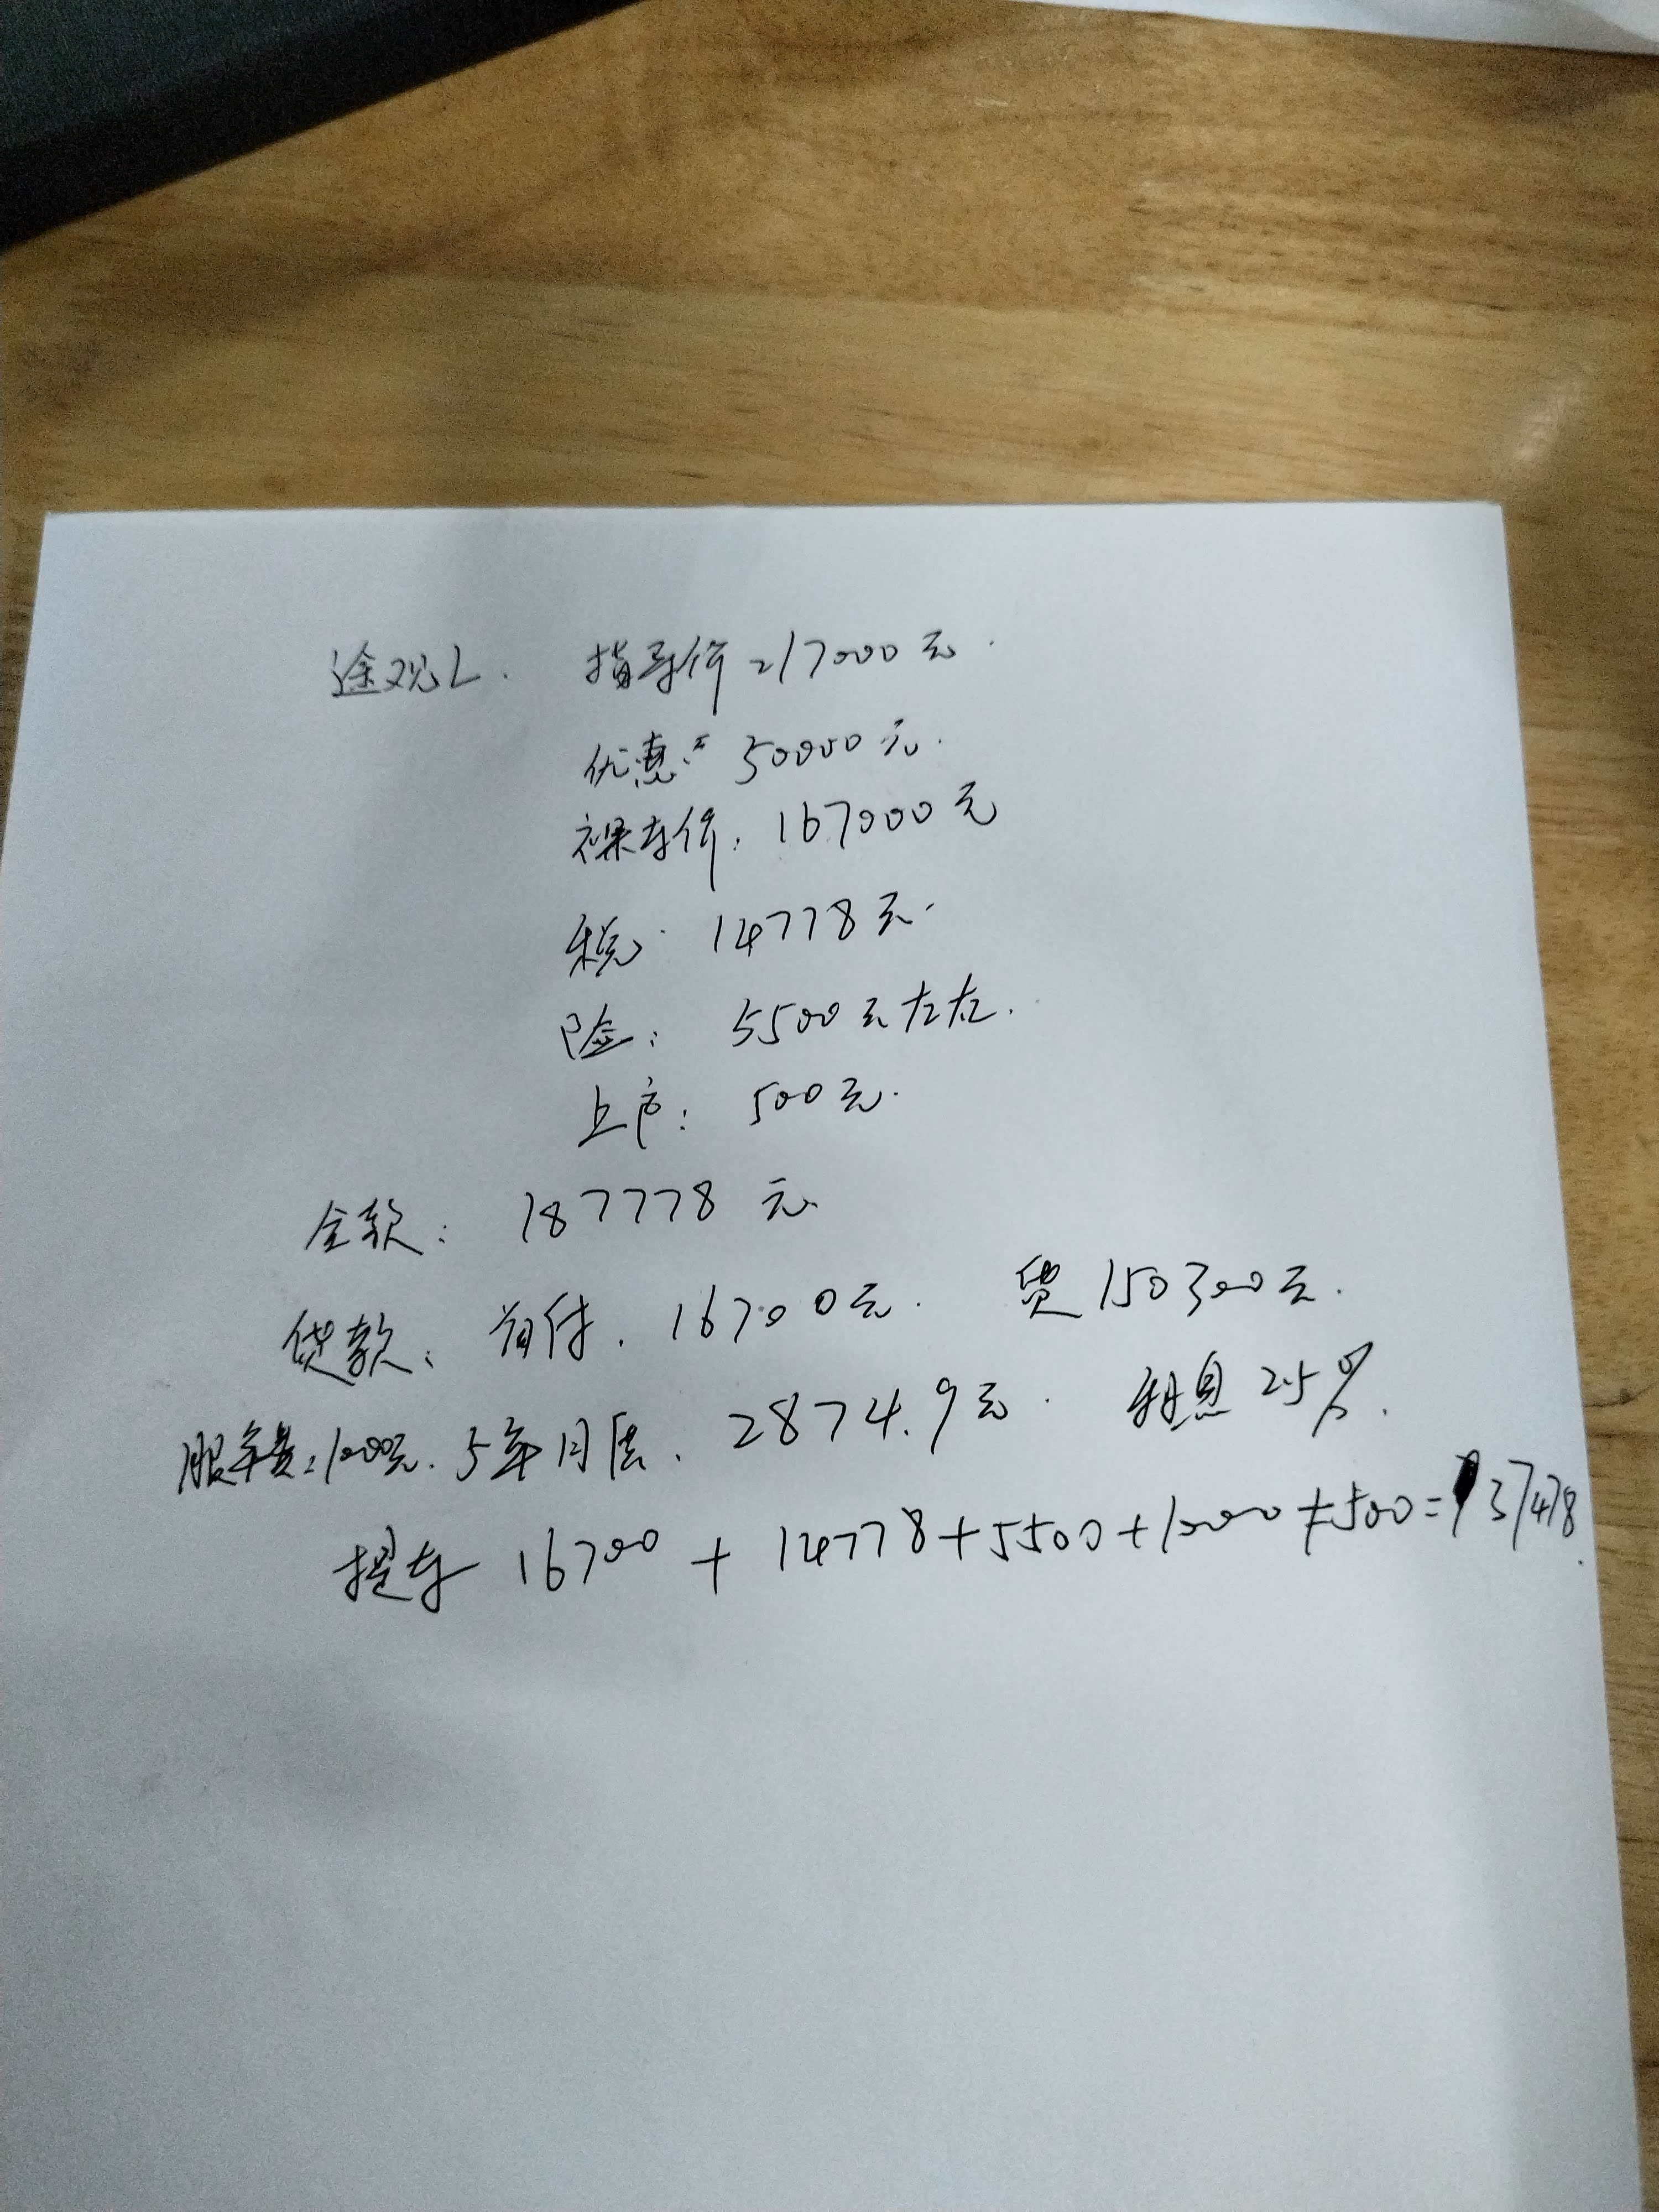 途观L. 指导价217000元.
优惠: 50000元.
裸车价: 167000元
税: 14778元.
险: 5500元左右.
上户: 500元.
全款: 187778 元
贷款: 首付. 16700元. 贷150300元.
服务费: 1000元. 5年月供. 2874.9元. 利息 25%.
提车 16700 + 14778+5500+1000+500=37478.